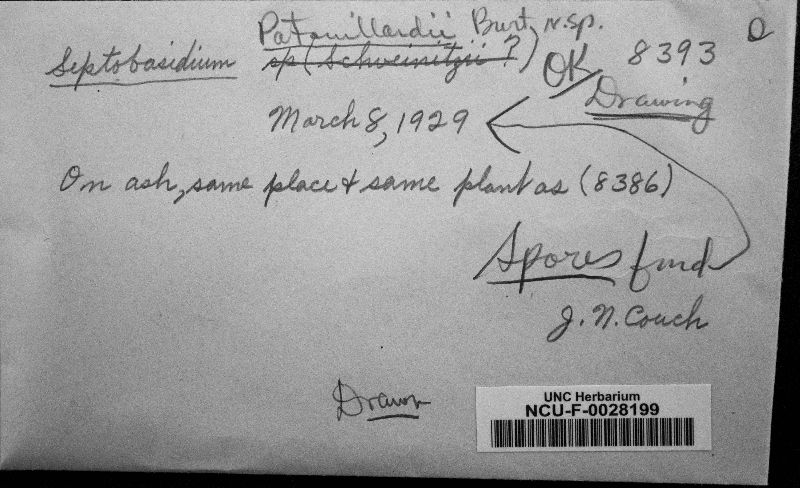 Patouillardii Burt, n.sp.
Septobasidium sp (Schweinitzii ?) OK 8393
Drawing
March 8, 1929
On ash, same place & same plant as (8386)
Spores fund
J. N. Couch
Drawn
UNC Herbarium
NCU-F-0028199